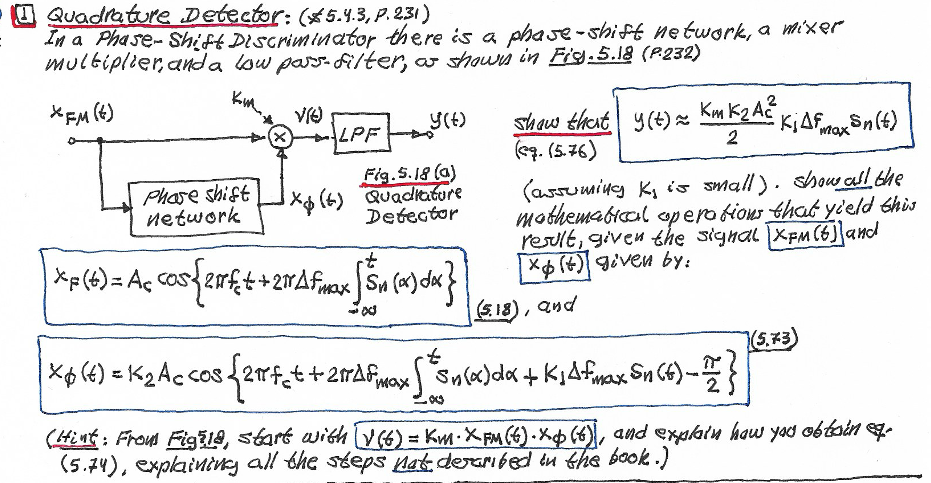 1 Quadrature Detector: (§5.4.3, P.231)
In a Phase-Shift Discriminator there is a phase-shift network, a mixer
multiplier, and a low pass-filter, as shown in Fig. 5.18 (P.232)
x_FM(t)
K_m
v(t)
LPF
y(t)
Phase shift
network
x_φ(t)
Fig. 5.18 (a)
Quadrature
Detector
show that y(t) ≈ (K_m K_2 A_c^2 / 2) K_1 Δf_max S_n(t)
(eq. (5.76)
(assuming K_1 is small). show all the
mathematical operations that yield this
result, given the signal x_FM(t) and
x_φ(t) given by:
x_F(t) = A_c cos{2πf_c t + 2πΔf_max ∫_{-∞}^{t} S_n(α)dα} (5.18), and
x_φ(t) = K_2 A_c cos{2πf_c t + 2πΔf_max ∫_{-∞}^{t} S_n(α)dα + K_1 Δf_max S_n(t) - π/2} (5.73)
(Hint: From Fig 5.18, start with v(t) = K_m · x_FM(t) · x_φ(t), and explain how you obtain eq.
(5.74), explaining all the steps not described in the book.)